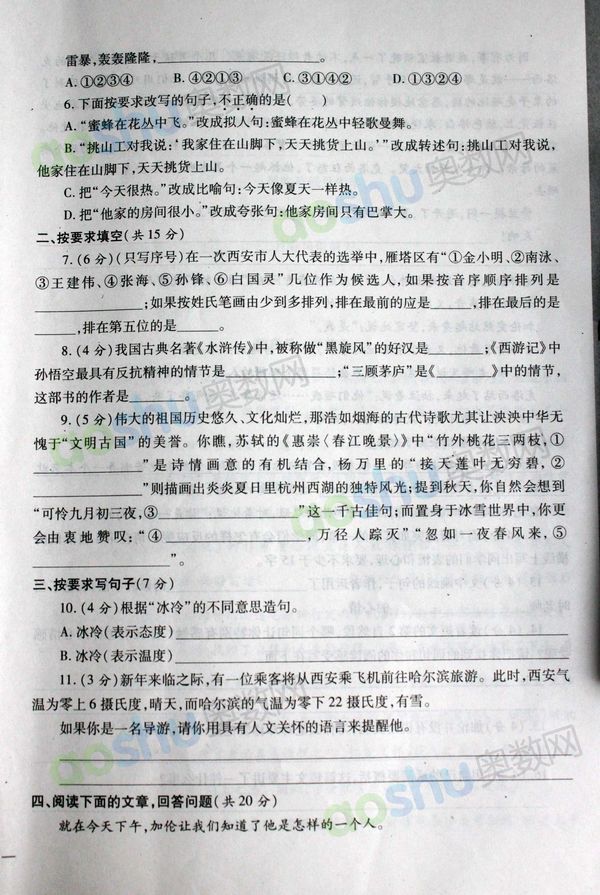 雷暴,轰轰隆隆,____________________。
A.①②③④ B.④②①③ C.③①④② D.①③②④
6.下面按要求改写的句子,不正确的是( )
A.“蜜蜂在花丛中飞。”改成拟人句:蜜蜂在花丛中轻歌曼舞。
B.“挑山工对我说:‘我家住在山脚下,天天挑货上山。’”改成转述句:挑山工对我说,
他家住在山脚下,天天挑货上山。
C.把“今天很热。”改成比喻句:今天像夏天一样热。
D.把“他家的房间很小。”改成夸张句:他家房间只有巴掌大。
二、按要求填空(共 15 分)
7.(6 分)(只写序号)在一次西安市人大代表的选举中,雁塔区有“①金小明、②南泳、
③王建伟、④张海、⑤孙锋、⑥白国灵”几位作为候选人,如果按音序顺序排列是
____________;如果按姓氏笔画由少到多排列,排在最前的应是______,排在最后的是
______,排在第五位的是______。
8.(4 分)我国古典名著《水浒传》中,被称做“黑旋风”的好汉是________;《西游记》中
孙悟空最具有反抗精神的情节是____________;“三顾茅庐”是《________》中的情节,
这部书的作者是________。
9.(5 分)伟大的祖国历史悠久、文化灿烂,那浩如烟海的古代诗歌尤其让泱泱中华无
愧于“文明古国”的美誉。你瞧,苏轼的《惠崇〈春江晚景〉》中“竹外桃花三两枝,①
____________”是诗情画意的有机结合,杨万里的“接天莲叶无穷碧,②
____________”则描画出炎炎夏日里杭州西湖的独特风光;提到秋天,你自然会想到
“可怜九月初三夜,③______________”这一千古佳句;而置身于冰雪世界中,你更
会由衷地赞叹:“④______________,万径人踪灭”“忽如一夜春风来,⑤
______________”。
三、按要求写句子(7 分)
10.(4 分)根据“冰冷”的不同意思造句。
A.冰冷(表示态度)______________________________
B.冰冷(表示温度)______________________________
11.(3 分)新年来临之际,有一位乘客将从西安乘飞机前往哈尔滨旅游。此时,西安气
温为零上 6 摄氏度,晴天,而哈尔滨的气温为零下 22 摄氏度,有雪。
如果你是一名导游,请你用具有人文关怀的语言来提醒他。
四、阅读下面的文章,回答问题(共 20 分)
就在今天下午,加伦让我们知道了他是怎样的一个人。
aoshu奥数网
aoshu奥数网
aoshu奥数网
aoshu奥数网
aoshu奥数网
aoshu奥数网